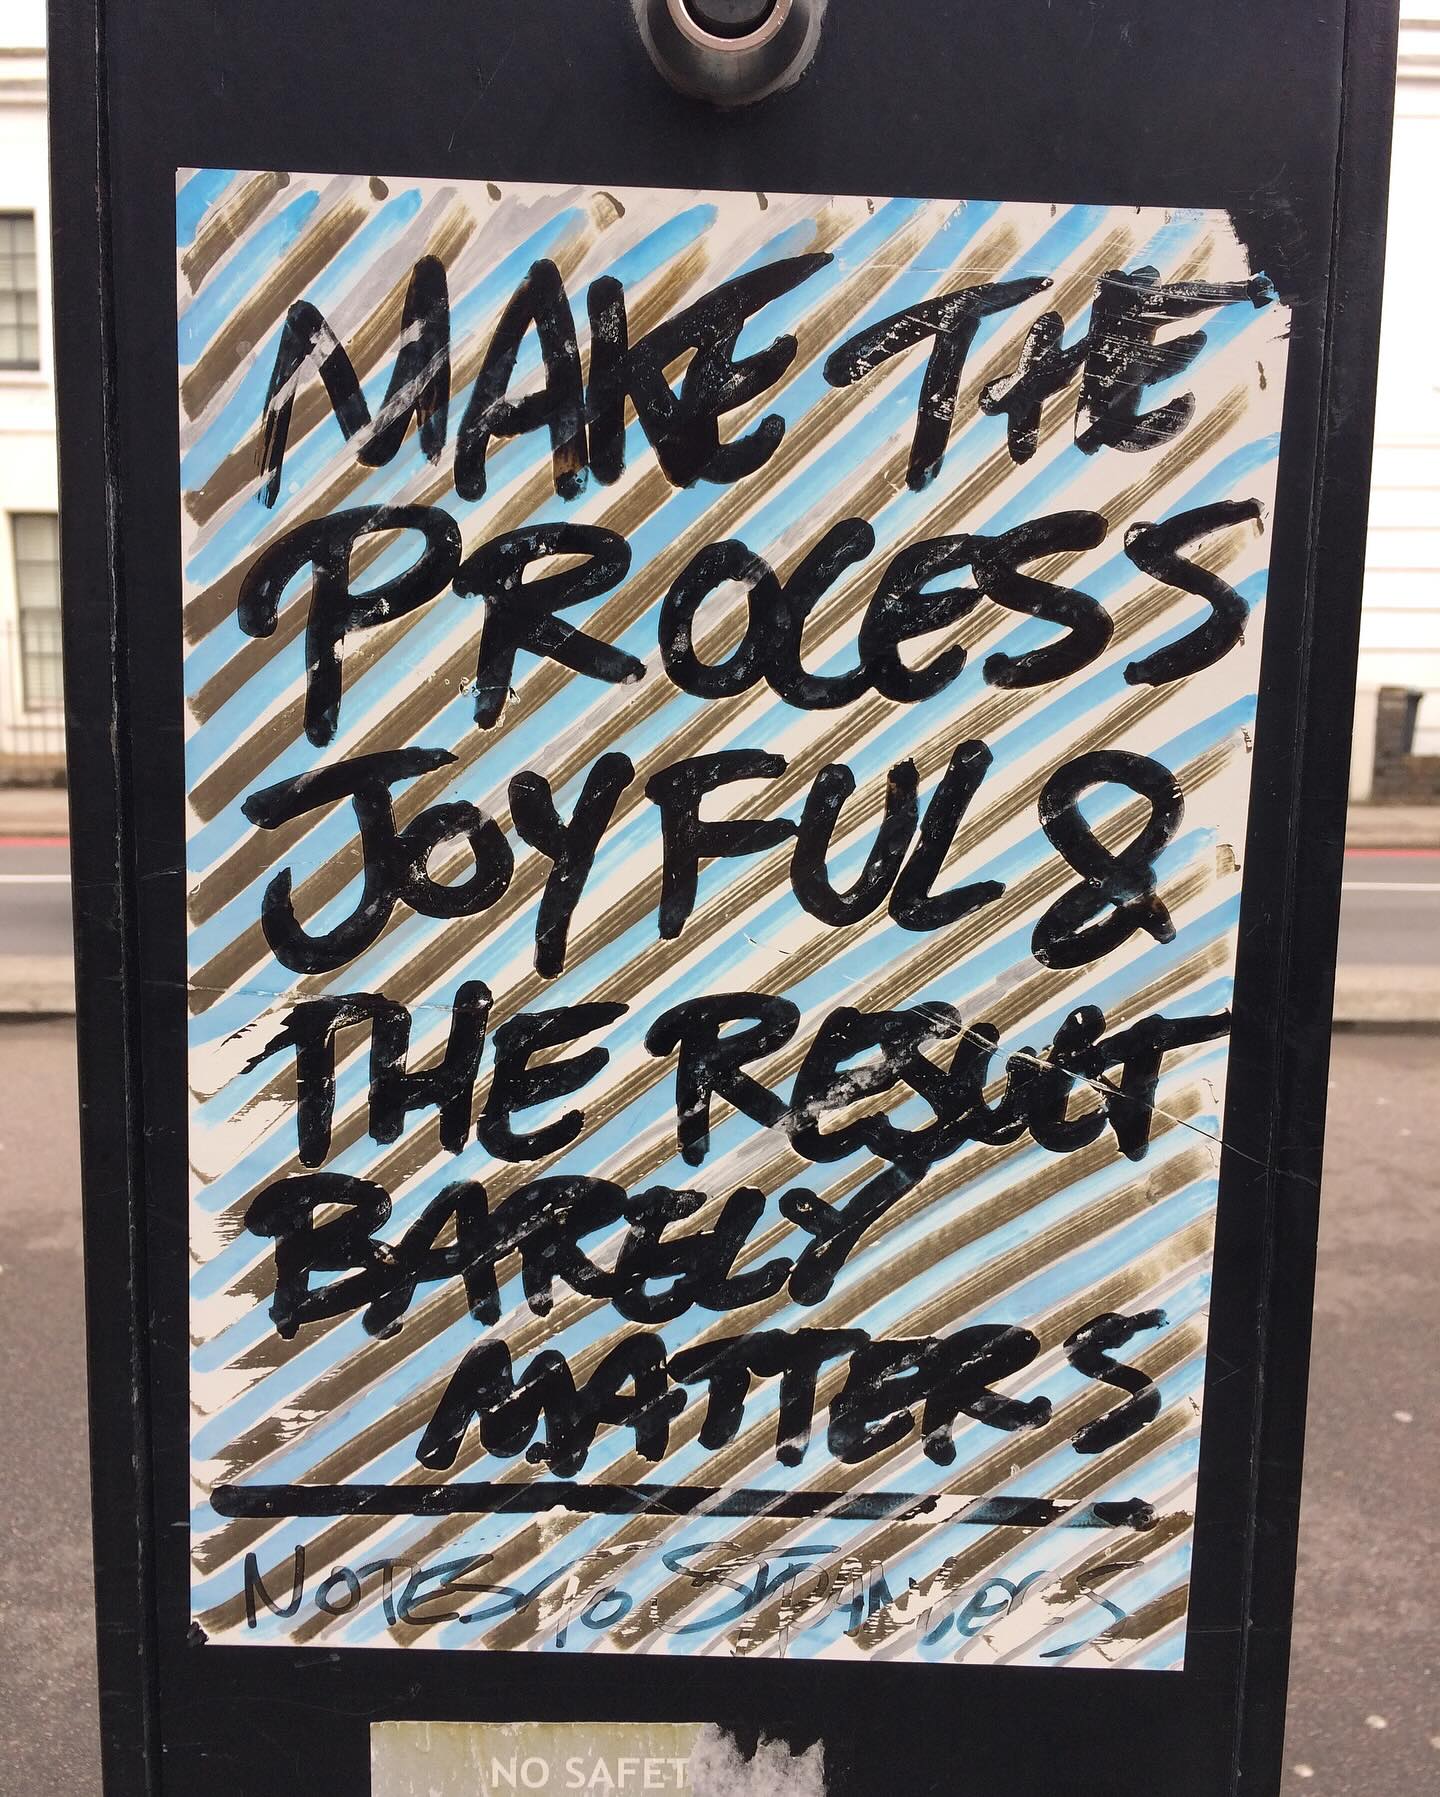 MAKE THE
PROCESS
JOYFUL &
THE RESULT
BARELY
MATTERS
NOTES TO STRANGERS
NO SAFET